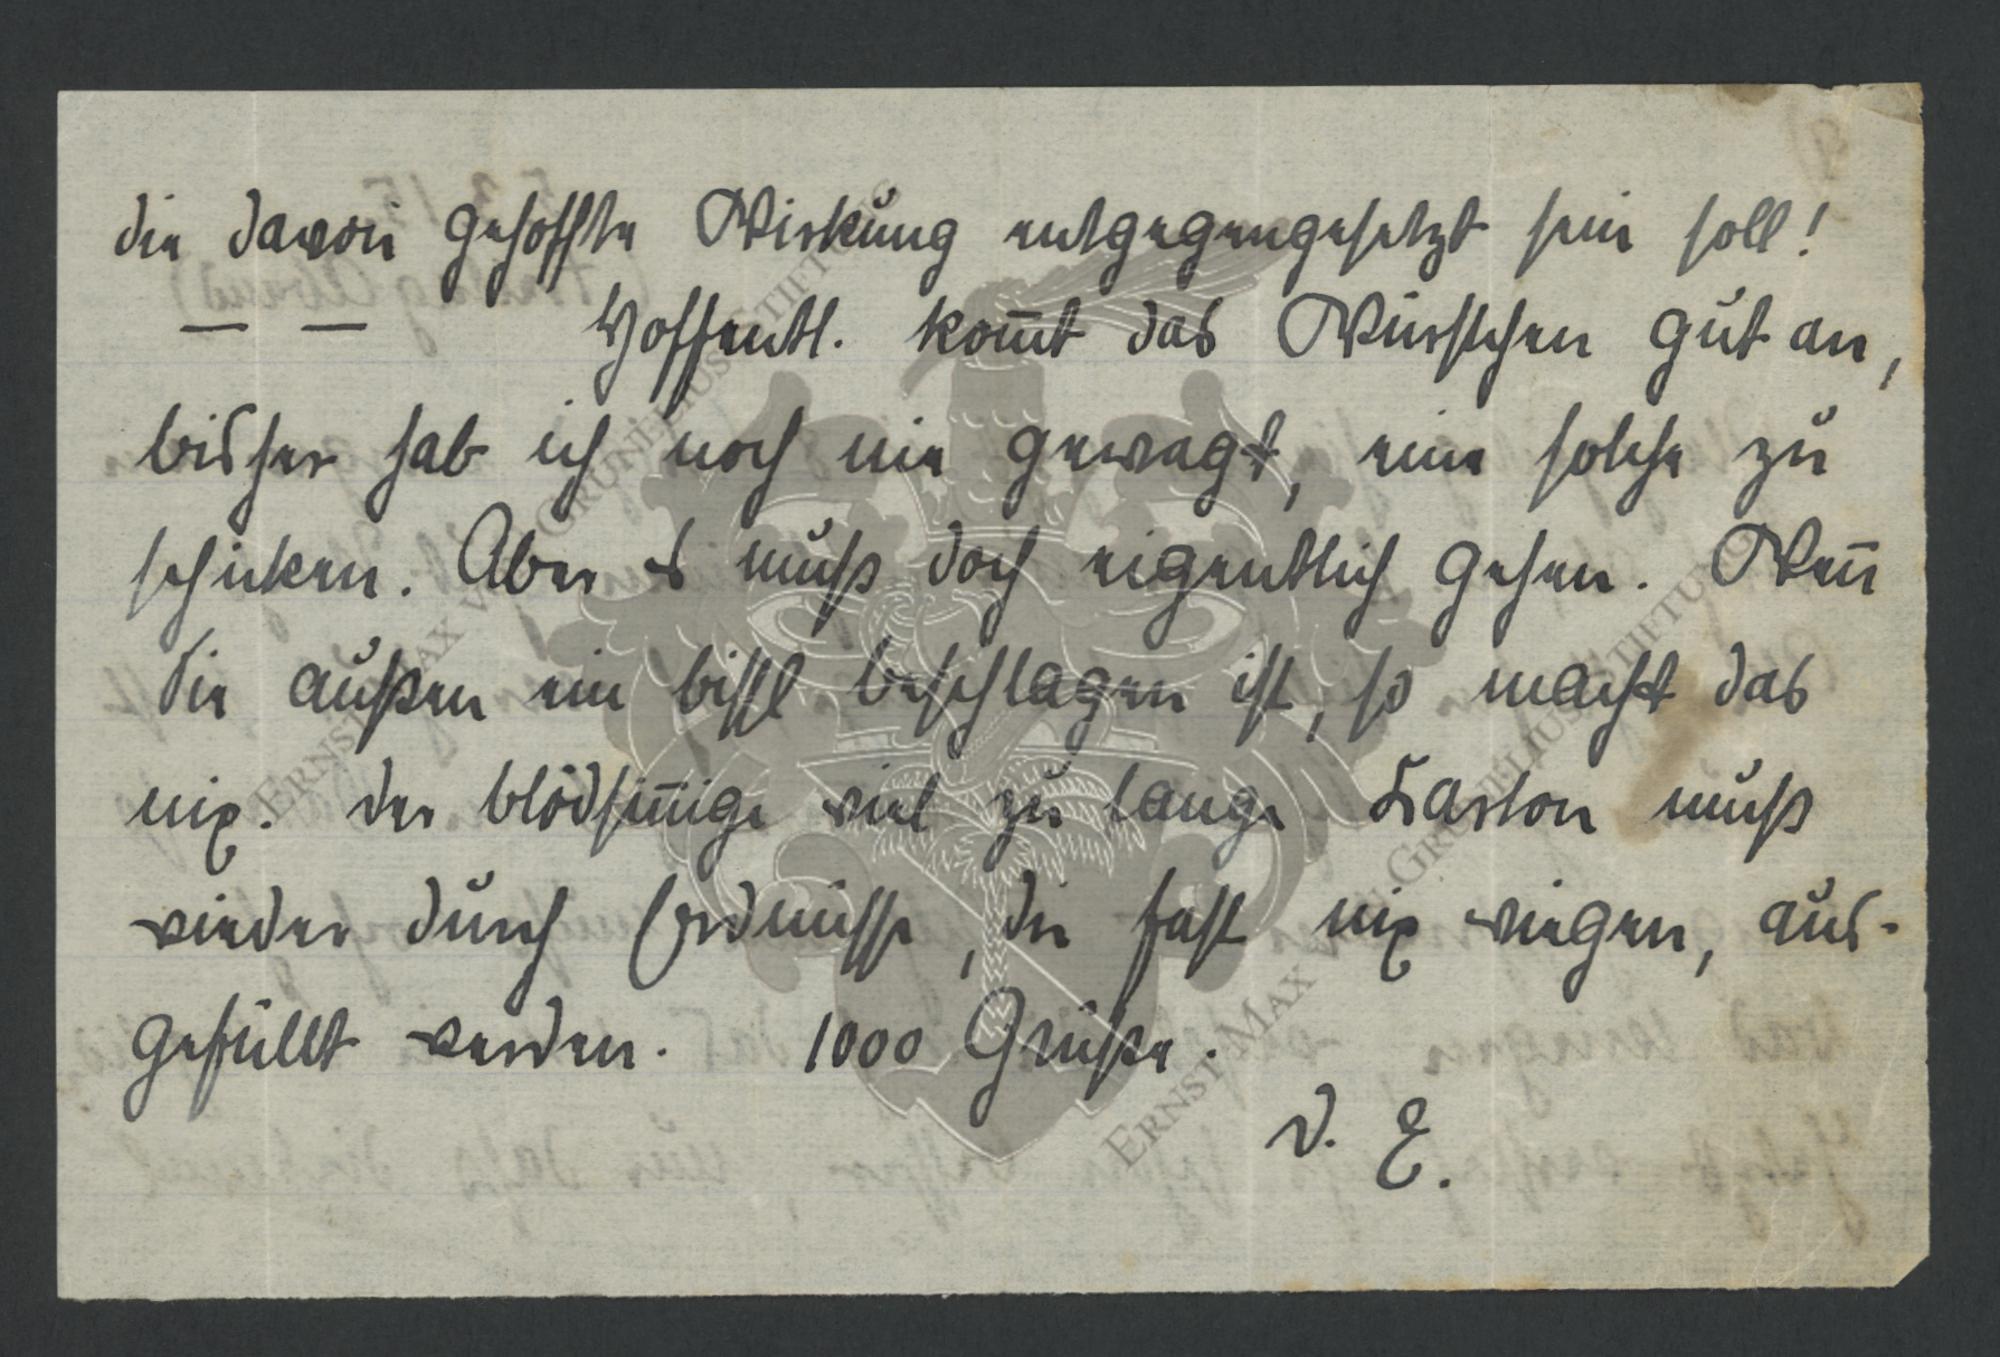 die davon gehoffte Wirkung entgegengesetzt sein soll!
— — Hoffentl. kom̅t das Würstchen gut an,
bisher hab ich noch nie gewagt, eine solche zu
schicken. Aber es muß doch eigentlich gehen. Wen̅
die außen ein bissl beschlagen ist, so macht das
nix. der blödsin̅ige viel zu lange Karton muß
wieder durch Erdnüsse, die fast nix wiegen, aus-
gefüllt werden. 1000 Grüße.
D. E.
ERNST MAX VON GRUNELIUS-STIFTUNG
ERNST MAX VON GRUNELIUS-STIFTUNG